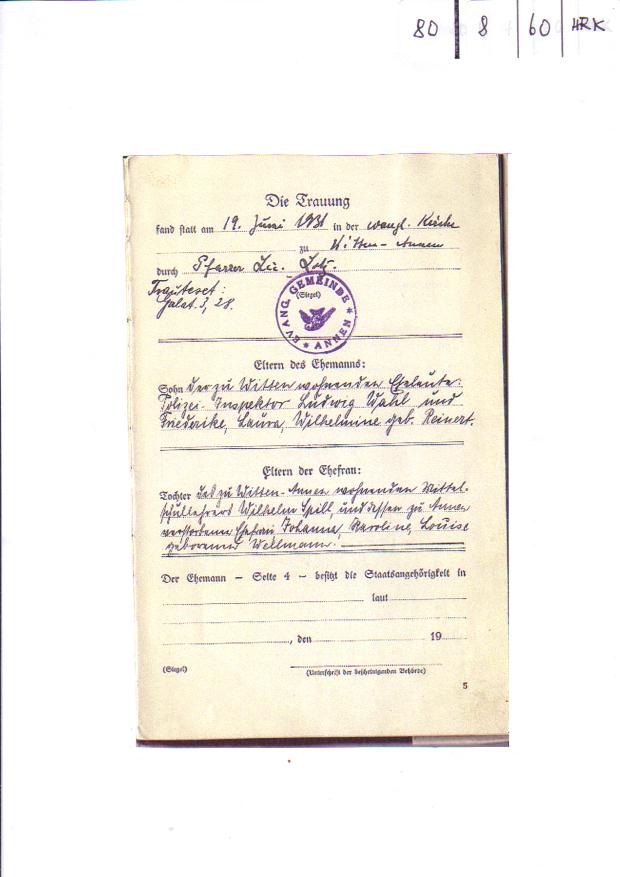 80 8 60 HRK
Die Trauung
fand statt am 19. Juni 1931 in der evangl. Kirche
zu Witten-Annen
durch Pfarrer Lic.
Trautext:
Galat. 3, 28.
(Siegel)
EVANG. GEMEINDE
* ANNEN *
Eltern des Ehemanns:
Sohn der zu Witten wohnenden Eheleute:
Polizei-Inspektor Ludwig Wahl und
Friederike, Laura, Wilhelmine geb. Reinert.
Eltern der Ehefrau:
Tochter des zu Witten-Annen wohnenden Mittel-
schullehrers Wilhelm Spill, und dessen zu Annen
verstorbene Ehefrau Johanna, Karoline, Louise
geborene Wellmann.
Der Ehemann – Seite 4 – besitzt die Staatsangehörigkeit in
laut
, den 19
(Siegel)
(Unterschrift der bescheinigenden Behörde)
5